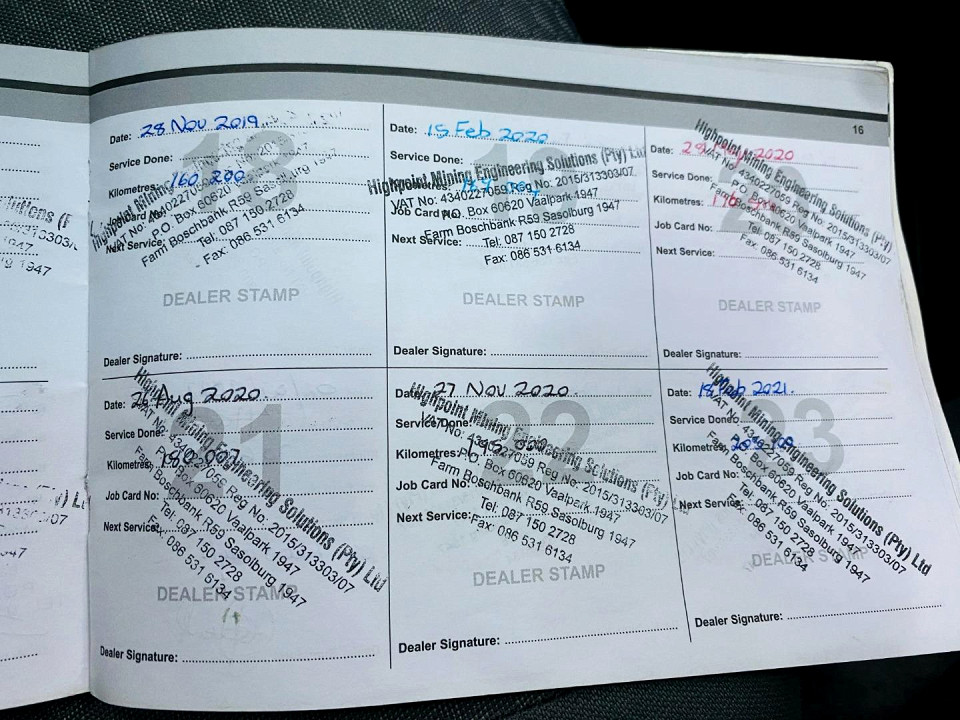 16
18
Date: 28 Nov 2019
Service Done:
Kilometres: 160 200
Next Service:
VAT No: 4340227059
P.O. Box 60620 Vaalpark 1947
Farm Boschbank R59 Sasolburg
Tel: 087 150 2728
Fax: 086 531 6134
DEALER STAMP
Dealer Signature:
Date: 15 Feb 2020
Service Done:
Highpoint Mining Engineering Solutions (Pty) Ltd
Kilometres:
VAT No: 4340227059 Reg No: 2015/313303/07
Job Card No:
P.O. Box 60620 Vaalpark 1947
Farm Boschbank R59 Sasolburg 1947
Next Service:
Tel: 087 150 2728
Fax: 086 531 6134
DEALER STAMP
Dealer Signature:
20
Date: 2020
Service Done:
Kilometres:
Job Card No:
Next Service:
Highpoint Mining Engineering Solutions (Pty)
VAT No: 4340227059 Reg No: 2015/313303/07
P.O. Box 60620 Vaalpark 1947
Farm Boschbank R59 Sasolburg 1947
Tel: 087 150 2728
Fax: 086 531 6134
DEALER STAMP
Dealer Signature:
21
Date: 26 Aug 2020
Service Done:
Kilometres:
Job Card No:
Next Service:
Highpoint Mining Engineering Solutions (Pty) Ltd
VAT No: 4340227059 Reg No: 2015/313303/07
P.O. Box 60620 Vaalpark 1947
Farm Boschbank R59 Sasolburg 1947
Tel: 087 150 2728
Fax: 086 531 6134
DEALER STAMP
Dealer Signature:
22
Date: 27 Nov 2020
Service Done:
Kilometres:
Job Card No:
Next Service:
Highpoint Mining Engineering Solutions (Pty)
VAT No: 4340227059 Reg No: 2015/313303/07
P.O. Box 60620 Vaalpark 1947
Farm Boschbank R59 Sasolburg 1947
Tel: 087 150 2728
Fax: 086 531 6134
DEALER STAMP
Dealer Signature:
23
Date: 18 Feb 2021
Service Done:
Kilometres:
Job Card No:
Next Service:
Highpoint Mining Engineering Solutions (Pty) Ltd
VAT No: 4340227059 Reg No: 2015/313303/07
P.O. Box 60620 Vaalpark 1947
Farm Boschbank R59 Sasolburg 1947
Tel: 087 150 2728
Fax: 086 531 6134
DEALER STAMP
Dealer Signature: